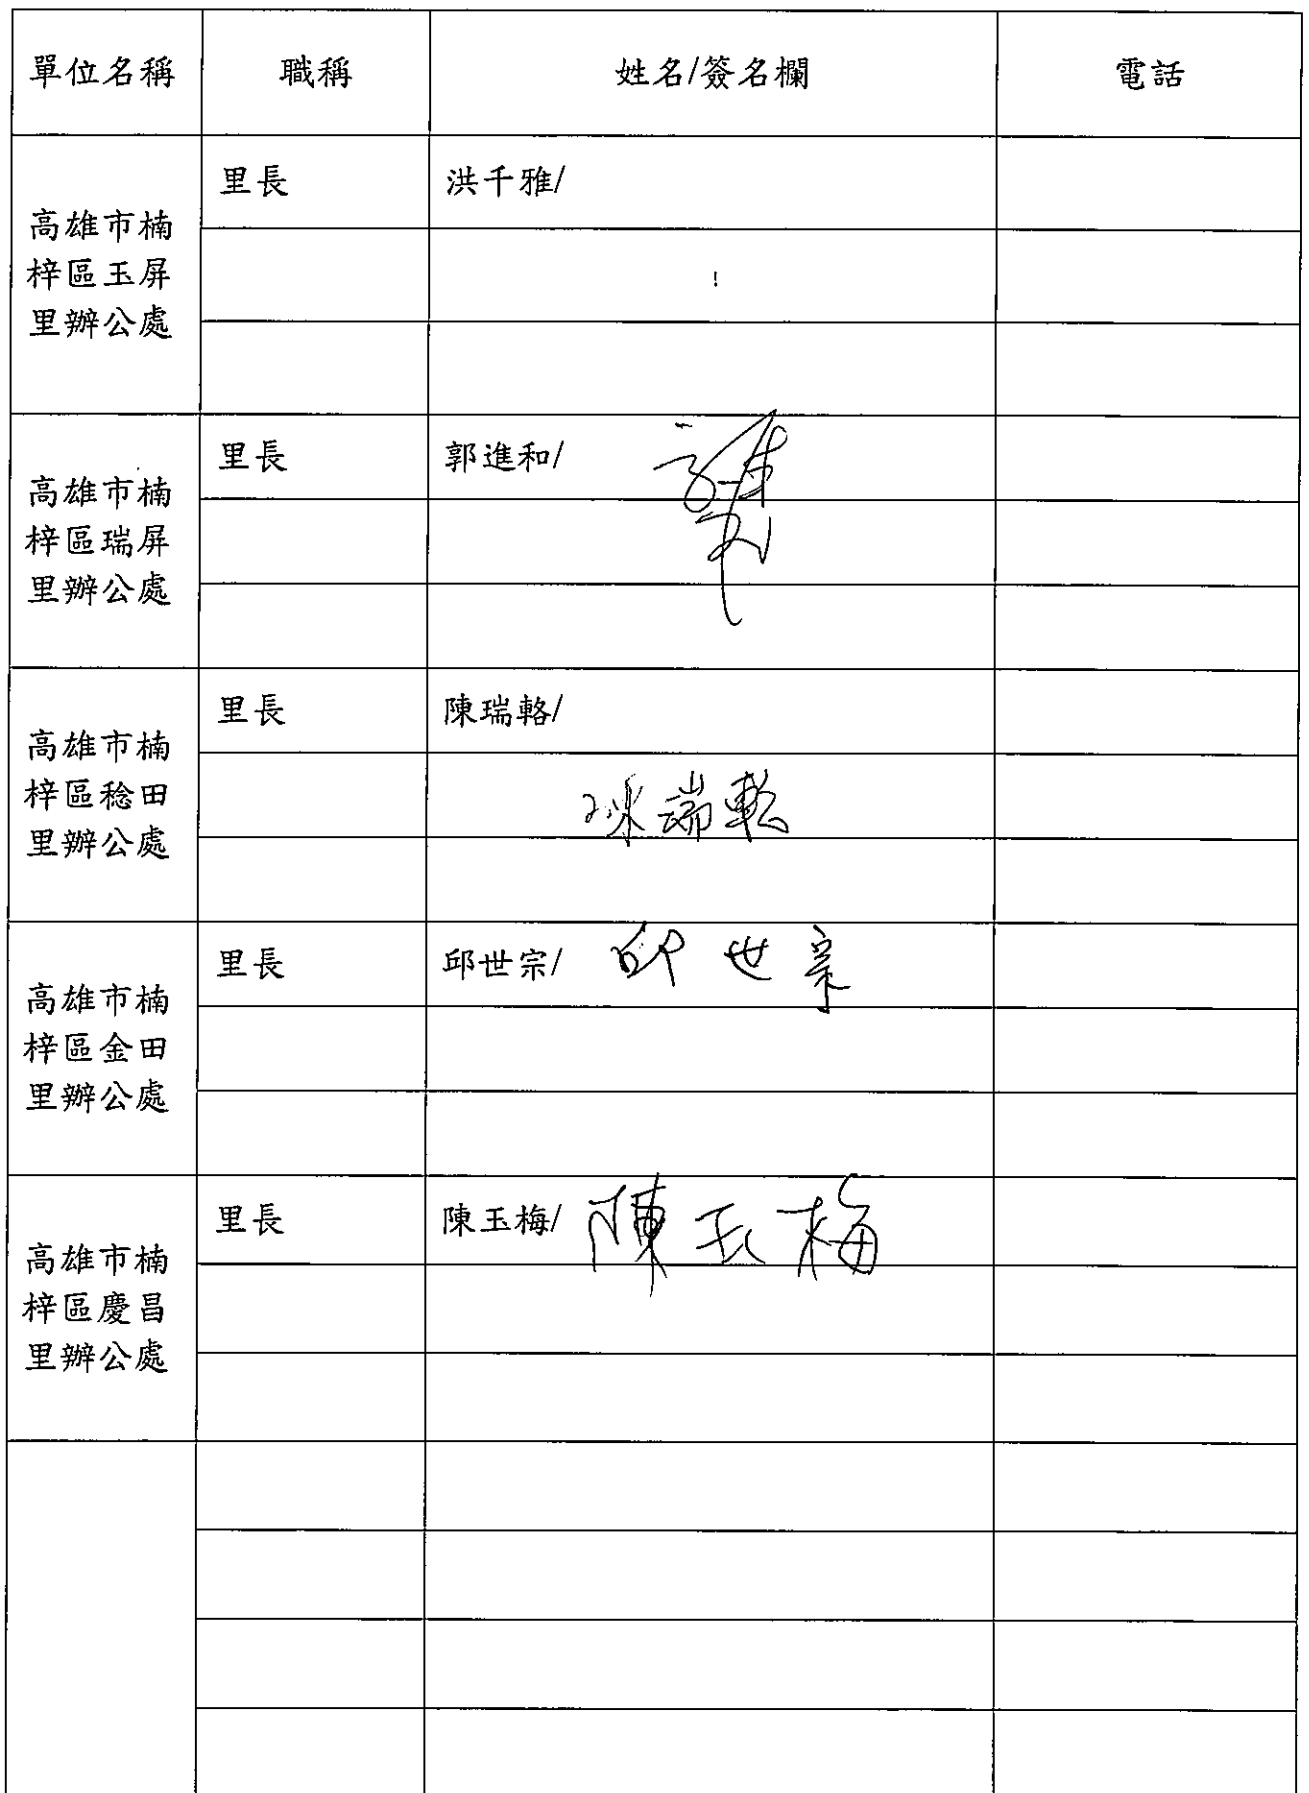 單位名稱 職稱 姓名/簽名欄 電話
高雄市楠
梓區玉屏
里辦公處
里長 洪千雅/
高雄市楠
梓區瑞屏
里辦公處
里長 郭進和/
高雄市楠
梓區稔田
里辦公處
里長 陳瑞輅/
高雄市楠
梓區金田
里辦公處
里長 邱世宗/ 邱世宗
高雄市楠
梓區慶昌
里辦公處
里長 陳玉梅/ 陳玉梅